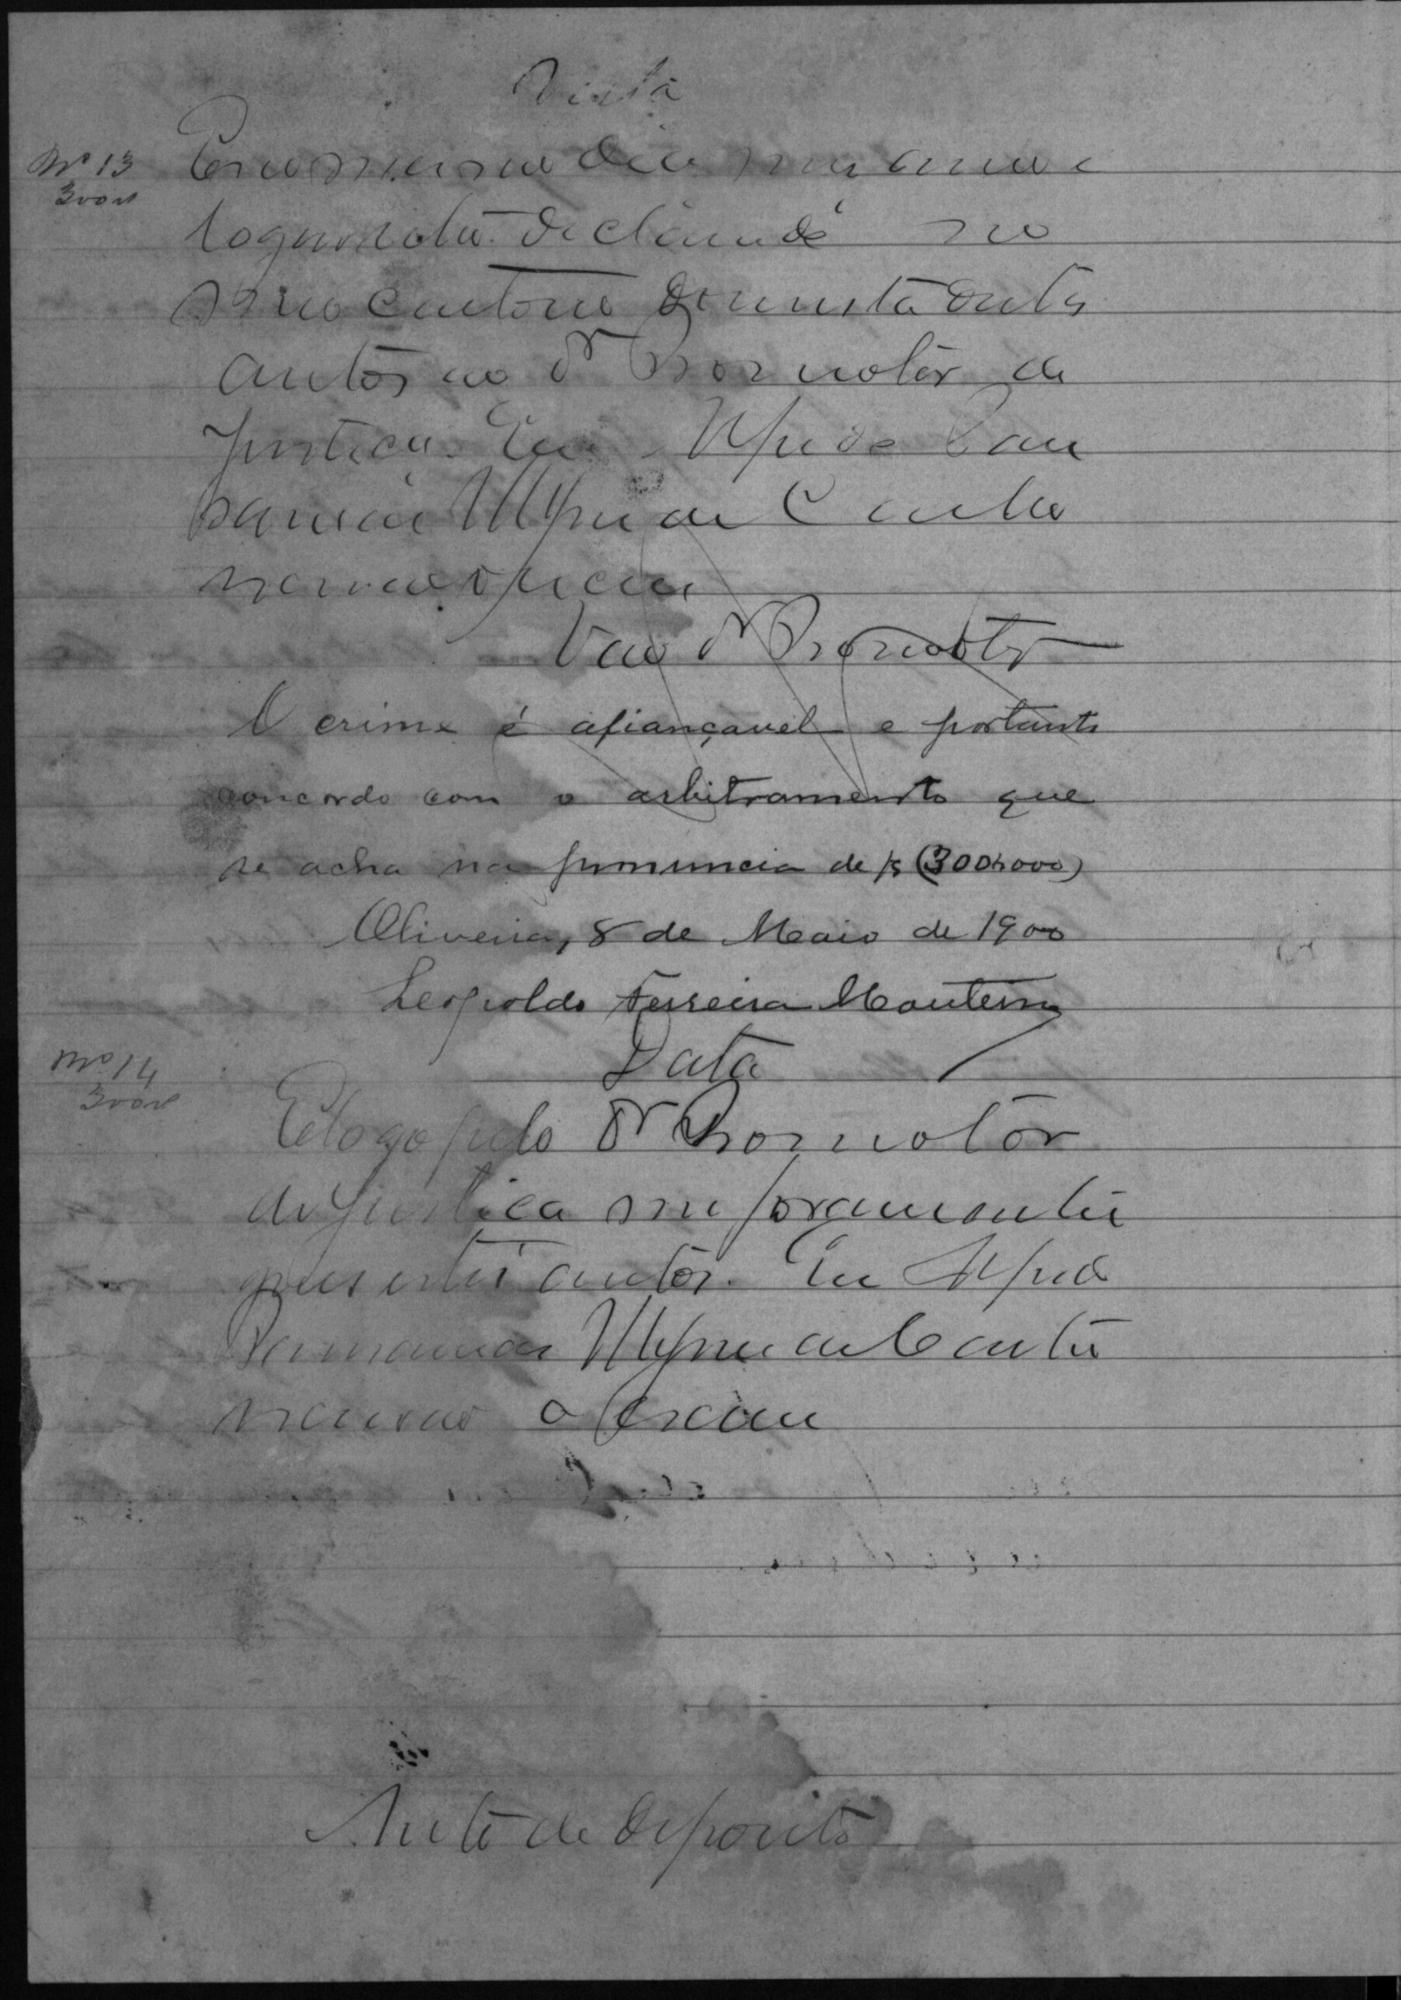 Vista
Nº 13
3000
E no mesmo dia mez anno e
logar retro declarado no
meo cartorio dou vista destes
autos ao Dr Promotor de
Justiça. Eu
o escrevi
Vao Dr Promotor
O crime é afiançavel e portanto
concordo com o arbitramento que
se acha na pronuncia de fs (300$000)
Oliveira, 8 de Maio de 1900
Leopoldo Ferreira Monteiro
Data
Nº 14
3000
E logo pelo Dr Promotor
de Justiça me foram entre
gues estes autos. Eu
o escrevi
Auto de deposito